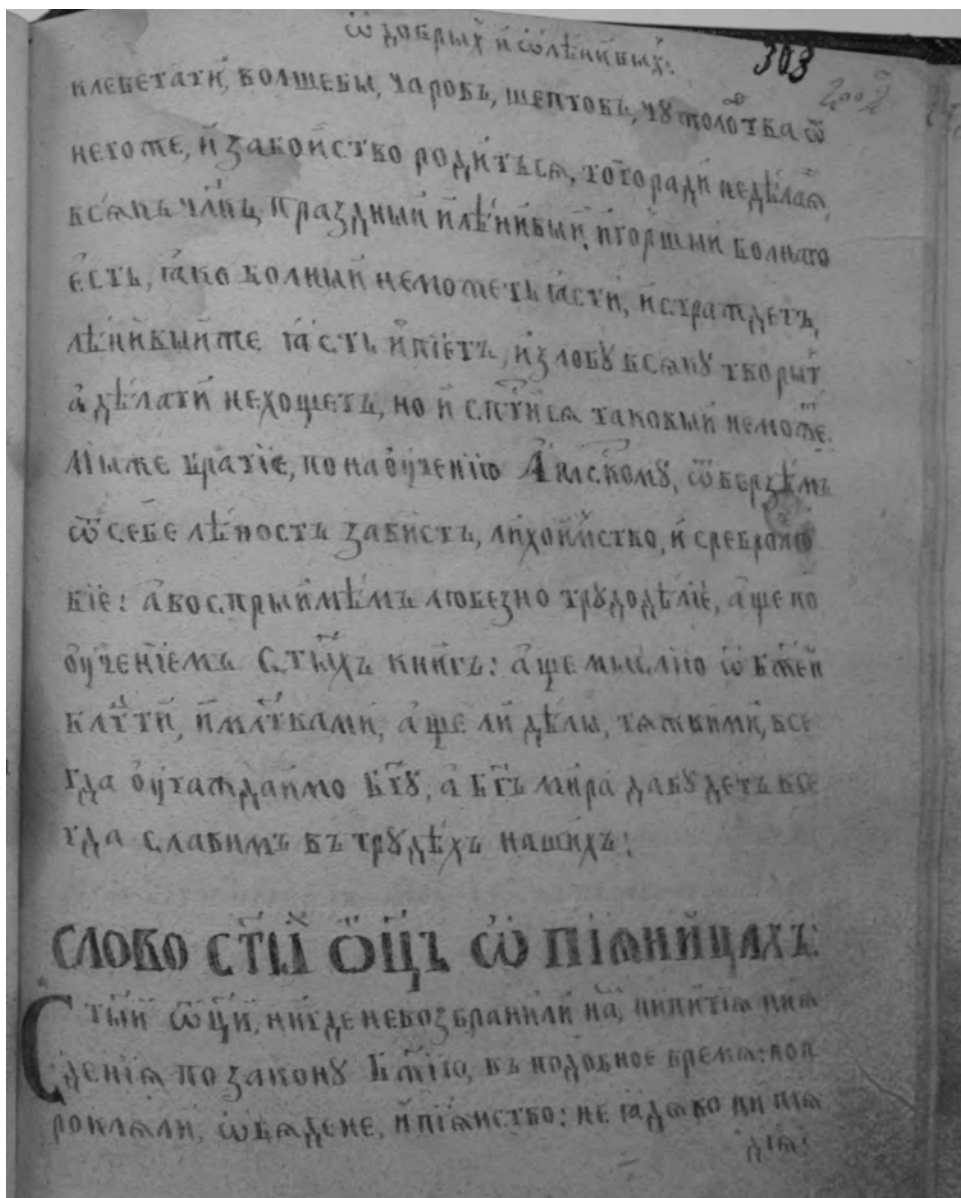 ѽ добрых и ѽ лѣнивых: 303
клеветати, волшебы, чаровъ, шептовъ, чу
негоже, и забойство родитъся, того ради не дѣлаѧ
всѧкъ члкъ, праздный и лѣнивый, и горшый болнаго
естъ, ꙗко болный неможетъ ꙗсти, и страждетъ,
лѣнивый же ꙗсть и пїетъ, и злобꙋ всѧкꙋ творыт
а дѣлати нехощетъ, но и сптисѧ таковый неможе
Мы же братїе, по наоученїю Апл҃скомꙋ, ѿверзѣмъ
ѿ себе лѣностъ завистъ, лихоимство, и сребролю
бїе: а воспрыймѣмъ любезно трꙋдодѣлїе, аще по
оученїемъ С҃тыхъ книгъ: аще мыслїю ѽ бж҃ей
бл҃гти, и мл҃твами, аще ли дѣлы, тѧжкими, все
гда оугаждаимо Бг҃ꙋ, а Бг҃ъ мира да бꙋдетъ все
гда славимъ въ трꙋдѣхъ нашихъ:
СЛОВО СТ҃ЫХ ѾЦ҃Ъ Ѽ ПЇѦНИЦАХЪ:
Ст҃ыи ѿц҃и, нигде невозбранили на, ни питїѧ ни ꙗ
денїѧ по законꙋ Бж҃їю, въ подобное времѧ: но п
роклѧли, ѽбѧдене, и пїѧнство: не ꙗдѡко ни пїѧ
дїѧ: